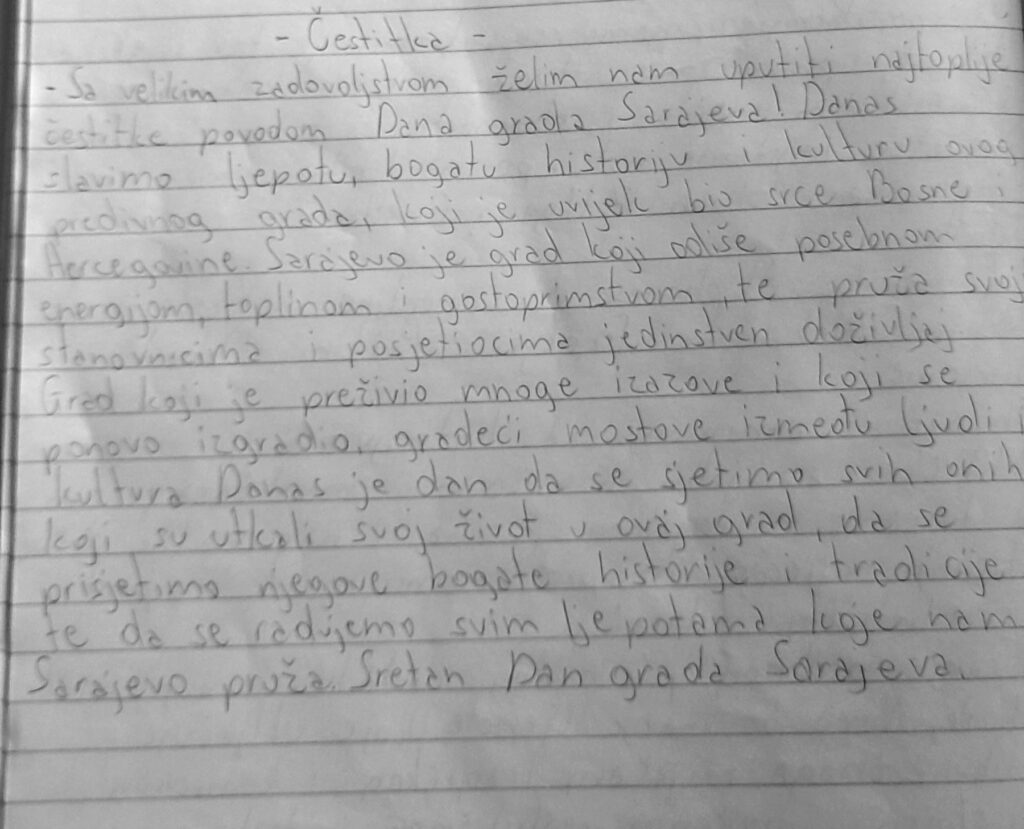 - Čestitka -
- Sa velikim zadovoljstvom želim nam uputiti najtoplije
čestitke povodom Dana grada Sarajeva! Danas
slavimo ljepotu, bogatu historiju i kulturu ovog
predivnog grada, koji je uvijek bio srce Bosne i
Hercegovine. Sarajevo je grad koji odiše posebnom
energijom, toplinom i gostoprimstvom, te pruža svoj
stanovnicima i posjetiocima jedinstven doživljaj
Grad koji je preživio mnoge izazove i koji se
ponovo izgradio, gradeći mostove između ljudi i
kultura Danas je dan da se sjetimo svih onih
koji su utkali svoj život u ovaj grad, da se
prisjetimo njegove bogate historije i tradicije
te da se radujemo svim ljepotama koje nam
Sarajevo pruža. Sretan Dan grada Sarajeva.